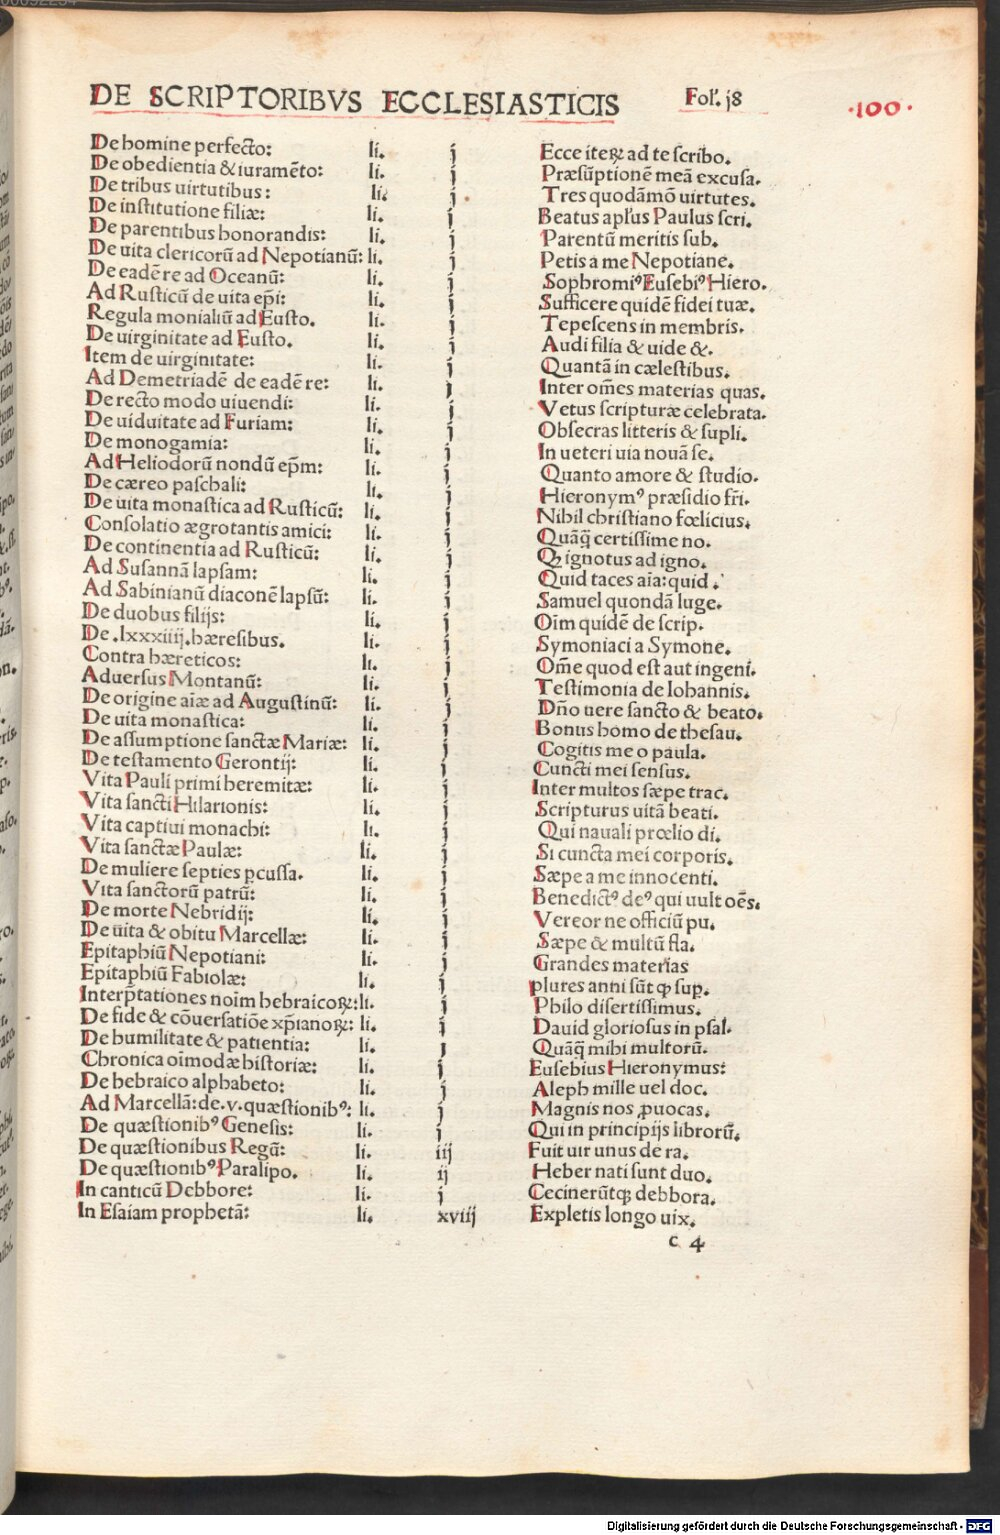 DE SCRIPTORIBVS ECCLESIASTICIS Fol'. j8 ·100·
De homine perfecto: li. j Ecce iteꝝ ad te scribo.
De obedientia & iuramēto: li. j Præsūptionē meā excusa.
De tribus uirtutibus: li. j Tres quodāmō uirtutes.
De institutione filiæ: li. j Beatus apl'us Paulus scri.
De parentibus honorandis: li. j Parentū meritis sub.
De uita clericorū ad Nepotianū: li. j Petis a me Nepotiane.
De eadē re ad Oceanū: li. j Sophromiꝰ Eusebiꝰ Hiero.
Ad Rusticū de uita ep̄i: li. j Sufficere quidē fidei tuæ.
Regula monialiū ad Eusto. li. j Tepescens in membris.
De uirginitate ad Eusto. li. j Audi filia & uide &.
Item de uirginitate: li. j Quantā in cælestibus.
Ad Demetriadē de eadē re: li. j Inter om̄es materias quas.
De recto modo uiuendi: li. j Vetus scripturæ celebrata.
De uiduitate ad Furiam: li. j Obsecras litteris & supli.
De monogamia: li. j In ueteri uia nouā se.
Ad Heliodorū nondū ep̄m: li. j Quanto amore & studio.
De cæreo paschali: li. j Hieronymꝰ præsidio fr̄i.
De uita monastica ad Rusticū: li. j Nihil christiano fœlicius.
Consolatio ægrotantis amici: li. j Quāq̄ certissime no.
De continentia ad Rusticū: li. j Qꝫ ignotus ad igno.
Ad Susannā lapsam: li. j Quid taces aīa: quid.
Ad Sabinianū diaconē lapsū: li. j Samuel quondā luge.
De duobus filijs: li. j Oīm quidē de scrip.
De .lxxxiiij. hæresibus. li. j Symoniaci a Symone.
Contra hæreticos: li. j Om̄e quod est aut ingeni.
Aduersus Montanū: li. j Testimonia de Iohannis.
De origine aīæ ad Augustinū: li. j Dn̄o uere sancto & beato.
De uita monastica: li. j Bonus homo de thesau.
De assumptione sanctæ Mariæ: li. j Cogitis me o paula.
De testamento Gerontij: li. j Cuncti mei sensus.
Vita Pauli primi heremitæ: li. j Inter multos sæpe trac.
Vita sancti Hilarionis: li. j Scripturus uitā beati.
Vita captiui monachi: li. j Qui nauali prœlio di.
Vita sanctæ Paulæ: li. j Si cuncta mei corporis.
De muliere septies pcussa. li. j Sæpe a me innocenti.
Vita sanctorū patrū: li. j Benedictꝰ deꝰ qui uult oēs.
De morte Nebridij: li. j Vereor ne officiū pu.
De uita & obitu Marcellæ: li. j Sæpe & multū fla.
Epitaphiū Nepotiani: li. j Grandes materias
Epitaphiū Fabiolæ: li. j plures anni sūt ꝙ sup.
Interp̄tationes noīm hebraicoꝝ: li. j Philo disertissimus.
De fide & cōuersatiōe xp̄ianoꝝ: li. j Dauid gloriosus in psal.
De humilitate & patientia: li. j Quāq̄ mihi multorū.
Chronica oīmodæ historiæ: li. j Eusebius Hieronymus:
De hebraico alphabeto: li. j Aleph mille uel doc.
Ad Marcellā: de .v. quæstionibꝰ: li. j Magnis nos ꝓuocas.
De quæstionibꝰ Genesis: li. j Qui in principijs librorū.
De quæstionibus Regū: li. iij Fuit uir unus de ra.
De quæstionibꝰ Paralipo. li. ij Heber nati sunt duo.
In canticū Debbore: li. j Cecinerūtqꝫ debbora.
In Esaiam prophetā: li. xviij Expletis longo uix.
c 4
Digitalisierung gefördert durch die Deutsche Forschungsgemeinschaft - DFG